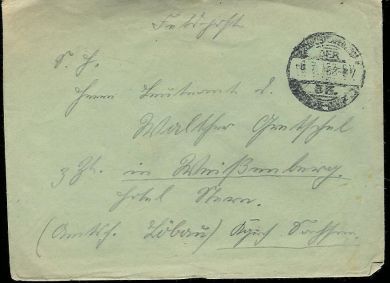 Feldpost
S. H.
Herrn Leutnant d.
Walther Gretschel
z Zt. in Weißenberg.
Hotel Stern.
(Amtsh. Löbau) Kgrch Sachsen.